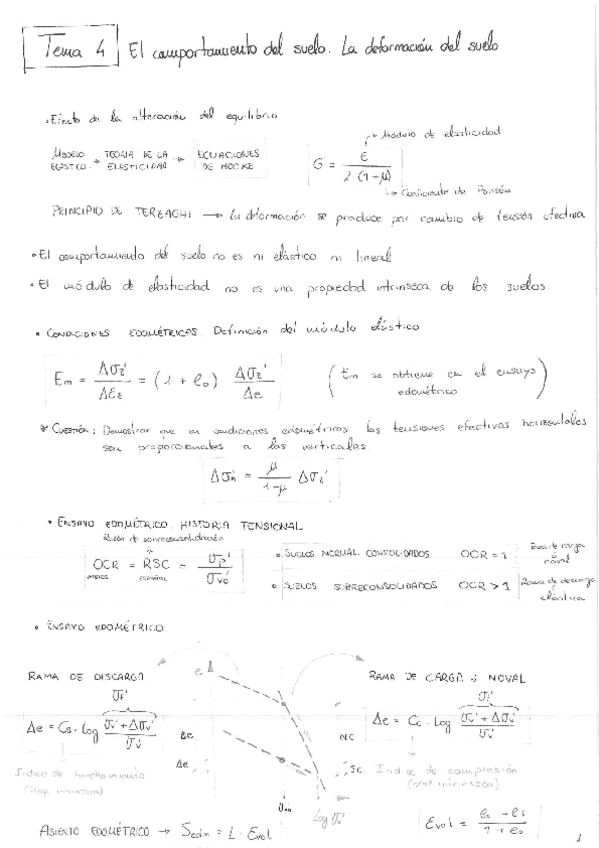 Tema 4 El comportamiento del suelo. La deformación del suelo
• Efecto de la alteración del equilibrio
MODELO ELÁSTICO → TEORIA DE LA ELASTICIDAD → ECUACIONES DE HOOKE
G = E / 2 (1-μ)
→ Módulo de elasticidad
→ Coeficiente de Poisson
PRINCIPIO DE TERZAGHI → La deformación se produce por cambio de tensión efectiva
• El comportamiento del suelo no es ni elástico ni lineal
• El módulo de elasticidad no es una propiedad intrínseca de los suelos.
• CONDICIONES EDOMÉTRICAS. Definición del módulo elástico
Em = Δσz' / Δεz = (1 + e₀) Δσz' / Δe
(Em se obtiene en el ensayo edométrico)
* CUESTIÓN: Demostrar que en condiciones edométricas las tensiones efectivas horizontales
son proporcionales a las verticales.
Δσh' = μ / 1-μ Δσz'
• ENSAYO EDOMÉTRICO. HISTORIA TENSIONAL
Razón de sobreconsolidación
OCR = RSC = σp' / σvo'
INGLÉS ESPAÑOL
• SUELOS NORMAL. CONSOLIDADOS OCR = 1 Rama de carga ó noval
• SUELOS SOBRECONSOLIDADOS OCR > 1 Rama de descarga elástica
• ENSAYO EDOMÉTRICO
RAMA DE DISCARGA
σf'
Δe = Cs · log σv' + Δσv' / σv'
Índice de hinchamiento
(Prop. intrínseca)
e
Δe
Δe
NC
SC
Log σv'
RAMA DE CARGA ó NOVAL
σf'
Δe = Cc · Log σv' + Δσv' / σv'
Índice de compresión
(prop intrínseca)
ASIENTO EDOMÉTRICO → Sedm = L · Evol
Evol = e₀ - ef / 1 + e₀
1